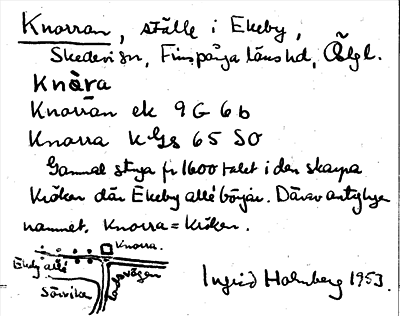 Knorran, ställe i Ekeby,
Skedevi sn, Finspånga läns hd, Ögl.
Knàra
Knorran ek 9 G 6 b
Knorra K Gs 65 SO
Gammal stuga fr 1600 talet i den skarpa
kröken där Ekeby allé börjar. Därav antagligen
namnet. Knorra = Kröken.
Knorra.
Ekeby allé
vägen
Sörviken
Ingrid Holmberg 1953.